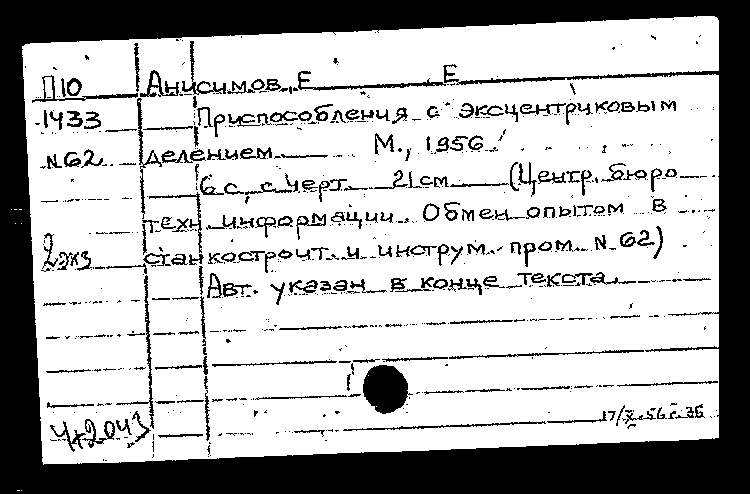 П10 Анисимов, Е Е
1433 Приспособления с эксцентриковым
N 62 делением М., 1956
6 с, с черт. 21 см (Центр. бюро
техн. информации. Обмен опытом в
2 экз станкостроит. и инструм. пром. N 62)
Авт. указан в конце текста.
17/X-56 г.